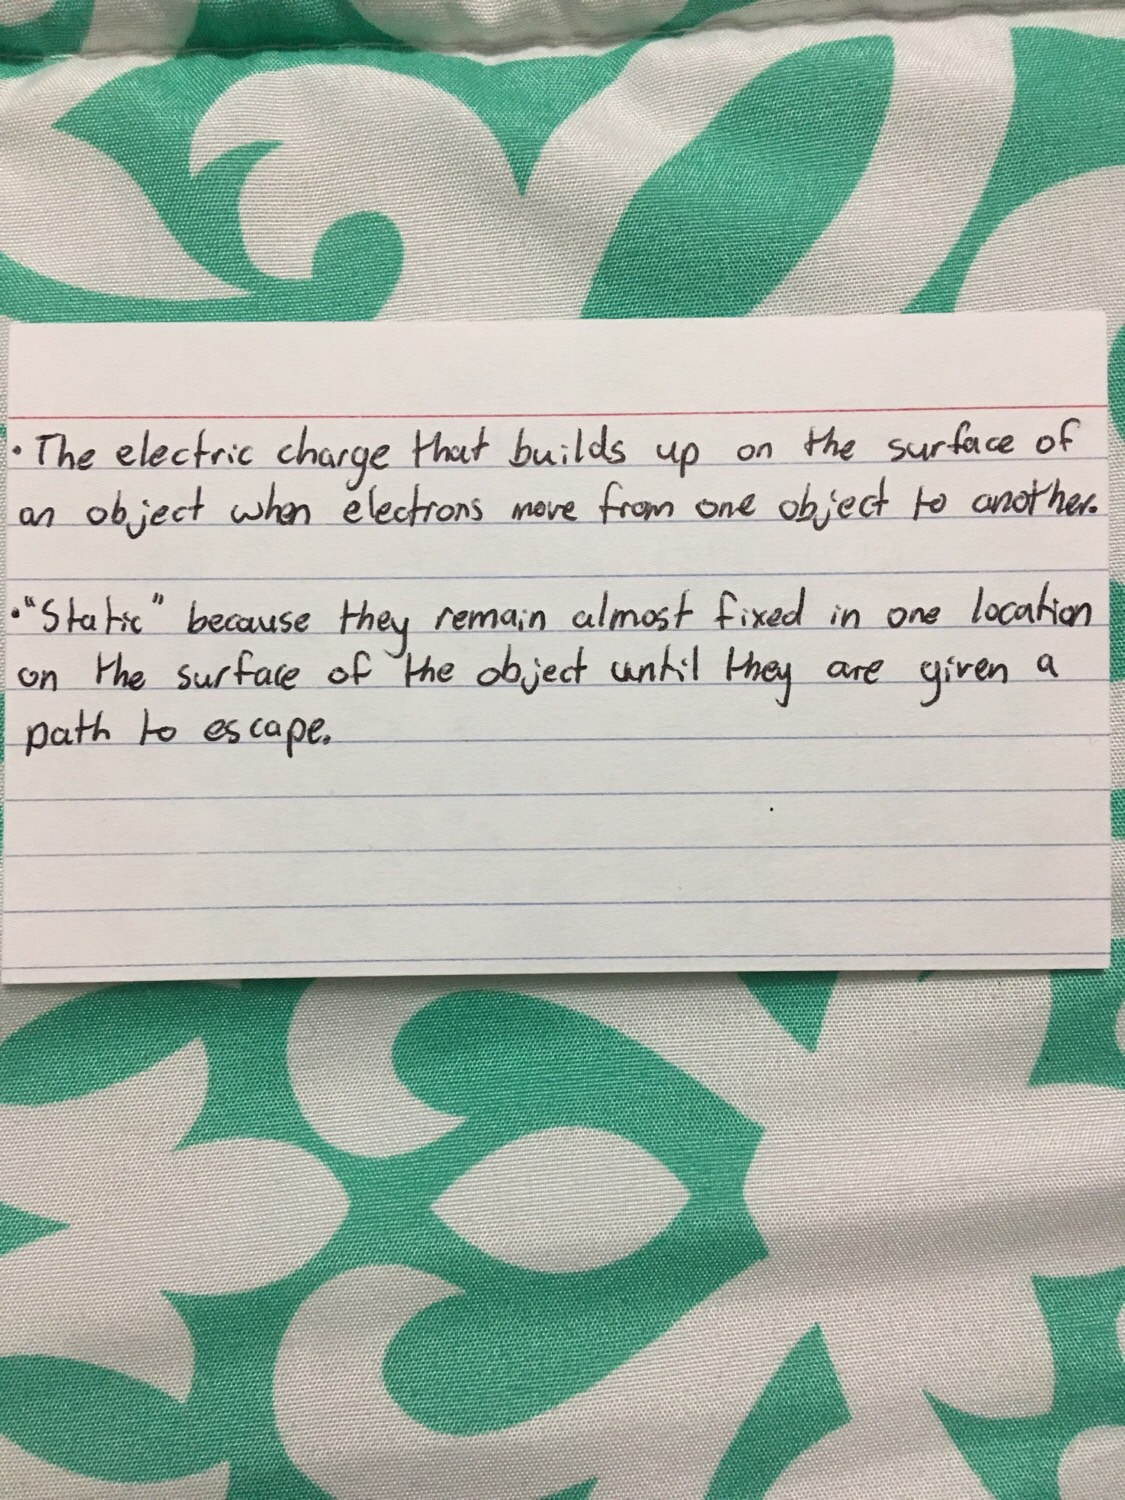 • The electric charge that builds up on the surface of
an object when electrons move from one object to another.
• "Static" because they remain almost fixed in one location
on the surface of the object until they are given a
path to escape.